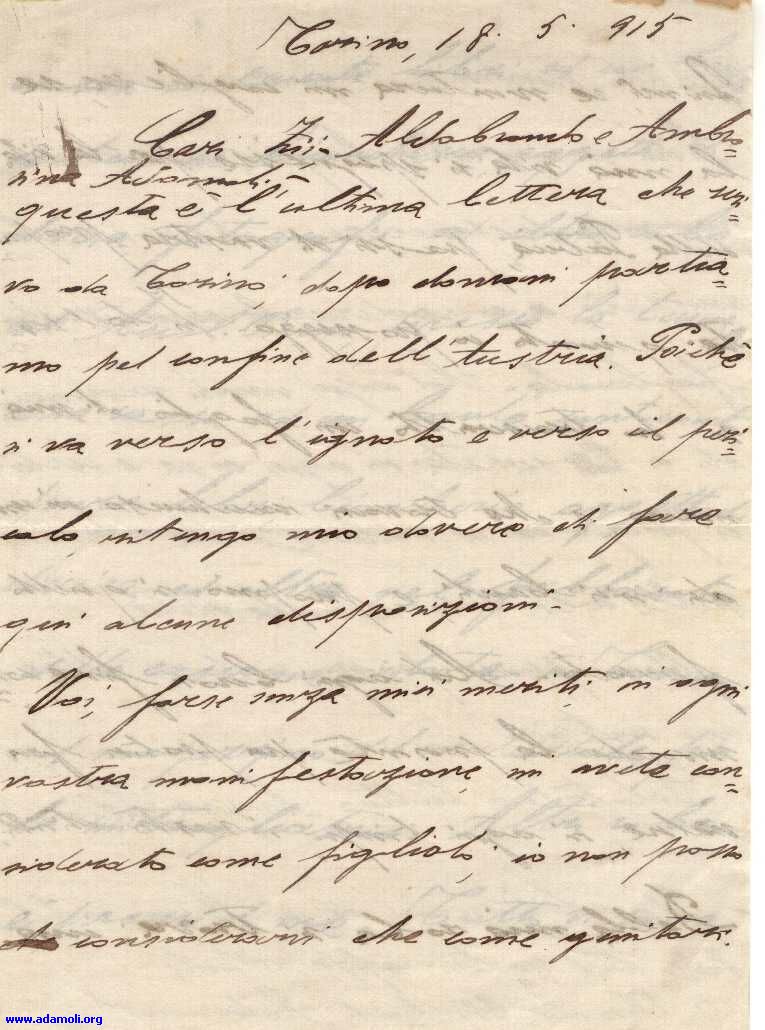 Torino, 18. 5. 915
Cari Zii Aldobrando e Ambro=
sina Adamoli,
questa è l'ultima lettera che scri=
vo da Torino; dopo domani partia=
mo pel confine dell'Austria. Poichè
si va verso l'ignoto e verso il peri=
colo, ritengo mio dovere di fare
qui alcune disposizioni.
Voi, forse senza miei meriti, in ogni
vostra manifestazione, mi avete con=
siderato come figliolo; io non posso
considerarvi che come genitori.
www.adamoli.org